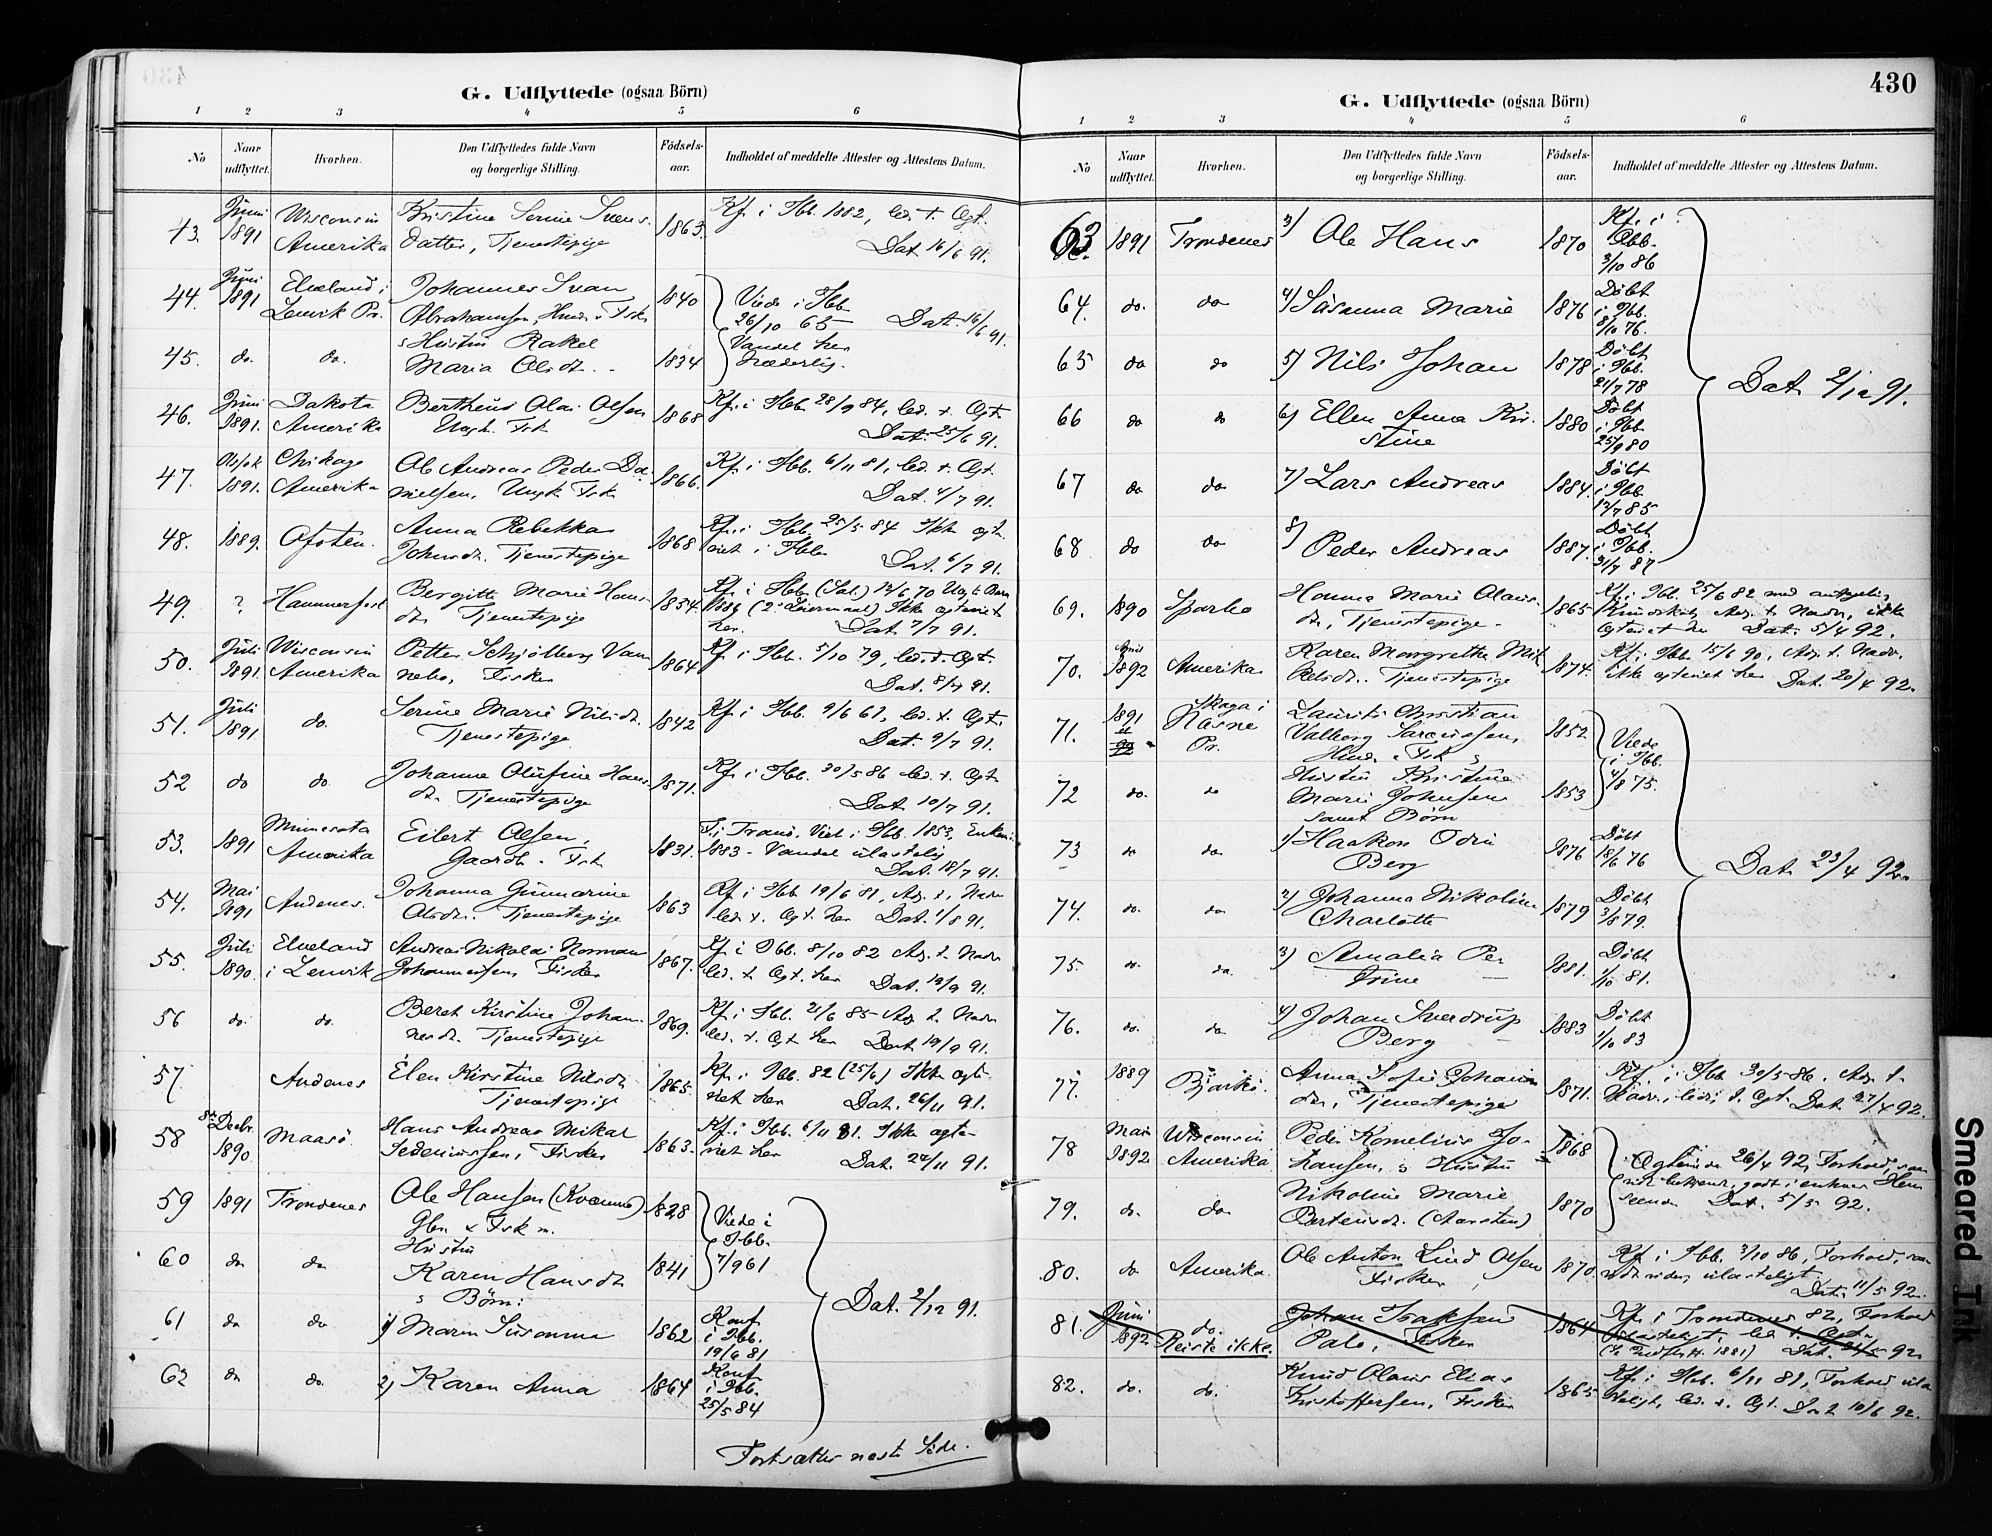 430
G. Udflyttede (ogsaa Börn)
1 2 3 4 5 6
No
Naar udflyttet.
Hvorhen.
Den Udflyttedes fulde Navn og borgerlige Stilling.
Fødsels- aar.
Indholdet af meddelte Attester og Attestens Datum.
43. Juni 1891 Wisconsin Amerika Kristine Serine Svens- datter, Tjenestepige 1863. Kf. i Ibb. 1882, led. t. Ægt. Dat. 16/6 91.
44. Juni 1891 Elveland i Lenvik Pr. Johannes Svan Abrahamsen, Husm. Fisk 1840 Viede i Ibb 26/10 65 Dat. 16/6 91.
45. do. do. s Hustru Rakel Maria Olsdtr. 1834 Vandel her hæderlig.
46. Juni 1891. Dakota Amerika Bertheus Olai Olsen Ungk. Fsk 1868 Kf. i Ibb 28/9 84, led. t. Ægt. Dat. 25/6 91.
47. 1891. Chikago Amerika Ole Andreas Peder Da- nielsen, Ungk. Fsk 1866. Kf. i Ibb. 6/11 81, led. t. Ægt. Dat. 4/7 91.
48. 1889. Ofoten. Anna Rebekka Johnsdtr. Tjenestepige 1868 Kf. i Ibb. 25/5 84 Ikke ægte- viet i Ibb. Dat. 6/7 91.
49. ? Hammerfest Bergitte Marie Hans- dtr. Tjenestepige 1854. Kf. i Ibb (Sal.) 14/6 70 1886 (2' Leiermaal) Ikke ægteviet her. Dat. 7/7 91.
50. Juli 1891. Wisconsin Amerika Petter Schjølberg Van- nebo, Fisker 1864 Kf. i Ibb. 5/10 79, led. t. Ægt. Dat. 8/7 91.
51. Juli 1891 do. Serine Marie Nilsdtr. Tjenestepige 1842 Kf. i Ibb. 9/6 61, led. t. Ægt. Dat. 9/7 91.
52 do do. Johanne Olufine Hans- dtr. Tjenestepige 1871. Kf. i Ibb. 30/5 86 led. t. Ægt Dat. 10/7 91.
53. 1891 Minnesota Amerika Eilert Olsen, Gaardb. Fsk 1831. F. i Tranø. Viet i Ibb. 1853, Enkem. 1883 - Vandel ulastelig Dat. 18/7 91.
54. Mai 1891 Andenes. Johanna Gunnarine Olsdtr. Tjenestepige 1863 Kf. i Ibb 19/6 81, Adg. t. Nadv led. t. Ægt. her Dat. 1/8 91.
55. Juli 1890. Elveland i Lenvik Andreas Nikolai Norman Johannessen, Fisker 1867. Kf. i Ibb. 8/10 82 Adg. t. Nadv led. t. Ægt. her Dat. 19/9 91.
56 do. do. Beret Kirstine Johan- nesdtr. Tjenestepige 1869. Kf. i Ibb. 21/6 85 Adg. t. Nadv led. t. Ægt. her Dat. 19/9 91.
57 Andenes Elen Kirstine Nilsdtr Tjenestepige 1865. Kf. i Ibb. 82 (25/6) Ikke ægte- viet her Dat. 26/11 91.
58 8de Decbr. 1890. Maasø. Hans Andreas Mikal Pederinssen, Fisker 1863. Kf. i Ibb. 6/11 81. Ikke ægte- viet her Dat. 22/11 91.
59 1891 Trondenes Ole Hansen (Kvænne) Gbr. & Fsk m. 1828 Viede i Ibb. 7/9 61
60 do do Hustru Karen Hansdtr s Børn: 1841 Dat. 2/12 91.
61 do do 1) Maren Susanna 1862 Konf i Ibb. 19/6 81
62 do do. 2) Karen Anna 1864 Konf. i Ibb. 25/5 84
Fortsættes næste Side.
G. Udflyttede (ogsaa Börn)
1 2 3 4 5 6
No
Naar udflyttet.
Hvorhen.
Den Udflyttedes fulde Navn og borgerlige Stilling.
Fødsels- aar.
Indholdet af meddelte Attester og Attestens Datum.
63 1891 Trondenes 3) Ole Hans 1870 Kf. i Ibb. 3/10 86
64. do. do 4) Susanna Marie 1876 Døbt i Ibb. 8/10 76.
65 do do 5) Nils Johan 1878 Døbt i Ibb. 21/7 78 Dat. 2/12 91.
66 do do 6) Ellen Anna Kir- stine 1880 Døbt i Ibb 25/9 80
67 do do 7) Lars Andreas 1884. Døbt i Ibb. 12/7 85
68 do do 8) Peder Andreas 1887. Døbt i Ibb. 31/7 87
69. 1890 Sparbo Hanna Marie Olaus- dtr, Tjenestepige. 1865 Kf. i Ibb. 25/6 82 med Kundskab, Adg. t. Nadv, ikke ægteviet her Dat. 5/4 92.
70. April 1892 Amerika Karen Margrethe Mik kelsdtr. Tjenestepige 1874. Kf. i Ibb 15/6 90, Adg. t. Nadv. ikke ægteviet her Dat. 20/4 92.
71. 1891 Skaga i Hasne Pr. Laurits Christian Valberg Husm. Fsk s 1852 Viede i Ibb. 4/8 75.
72 do. do Hustru Kristine Marie Johnsen samt Børn 1853
73 do do 1) Haakon Odin Berg 1876 Døbt 18/6 76 Dat. 23/4 92.
74. do. do 2) Johanna Nikoline Charlotte 1879 Døbt 3/8 79.
75. do. do. 3) Amalia Pe- trine 1881. Døbt 1/10 81.
76. do. do. 4) Johan Sverdrup Berg 1883 Døbt 1/10 83
77. 1889 Bjarkö. Anna Sofie Johan dtr, Tjenestepige 1871. Kf. i Ibb 30/5 86. Adg. t. Nadv., led. t. Ægt. Dat. 27/4 92.
78 Mai 1892 Wisconsin Amerika Peder Kornelius Jo- hansen, s Hustru 1868 26/4 92, Forhold, godt i enhver Hen seende Dat. 5/5 92.
79. do. do Nikoline Marie Berteusdtr. (Aarsten) 1870
80. do Amerika. Ole Anton Lind Olsen Fisker 1870 Kf. i Ibb. 3/10 86, Forhold, saa- vidt vides, ulasteligt. Dat. 11/5 92.
81. Juni 1892 do. Reiste ikke. Johan Isaksen Fisker 1864 Kf. i Trondenes 82, Forhold ulasteligt, led. t. Ægt. Dat. 92
82. do. do. Knud Olaus Elias Kristoffersen, Fisker 1865 Kf. i Ibb. 6/11 81, Forhold ula- steligt, led. t. Ægt. Dat 10/6 92.
Smeared Ink